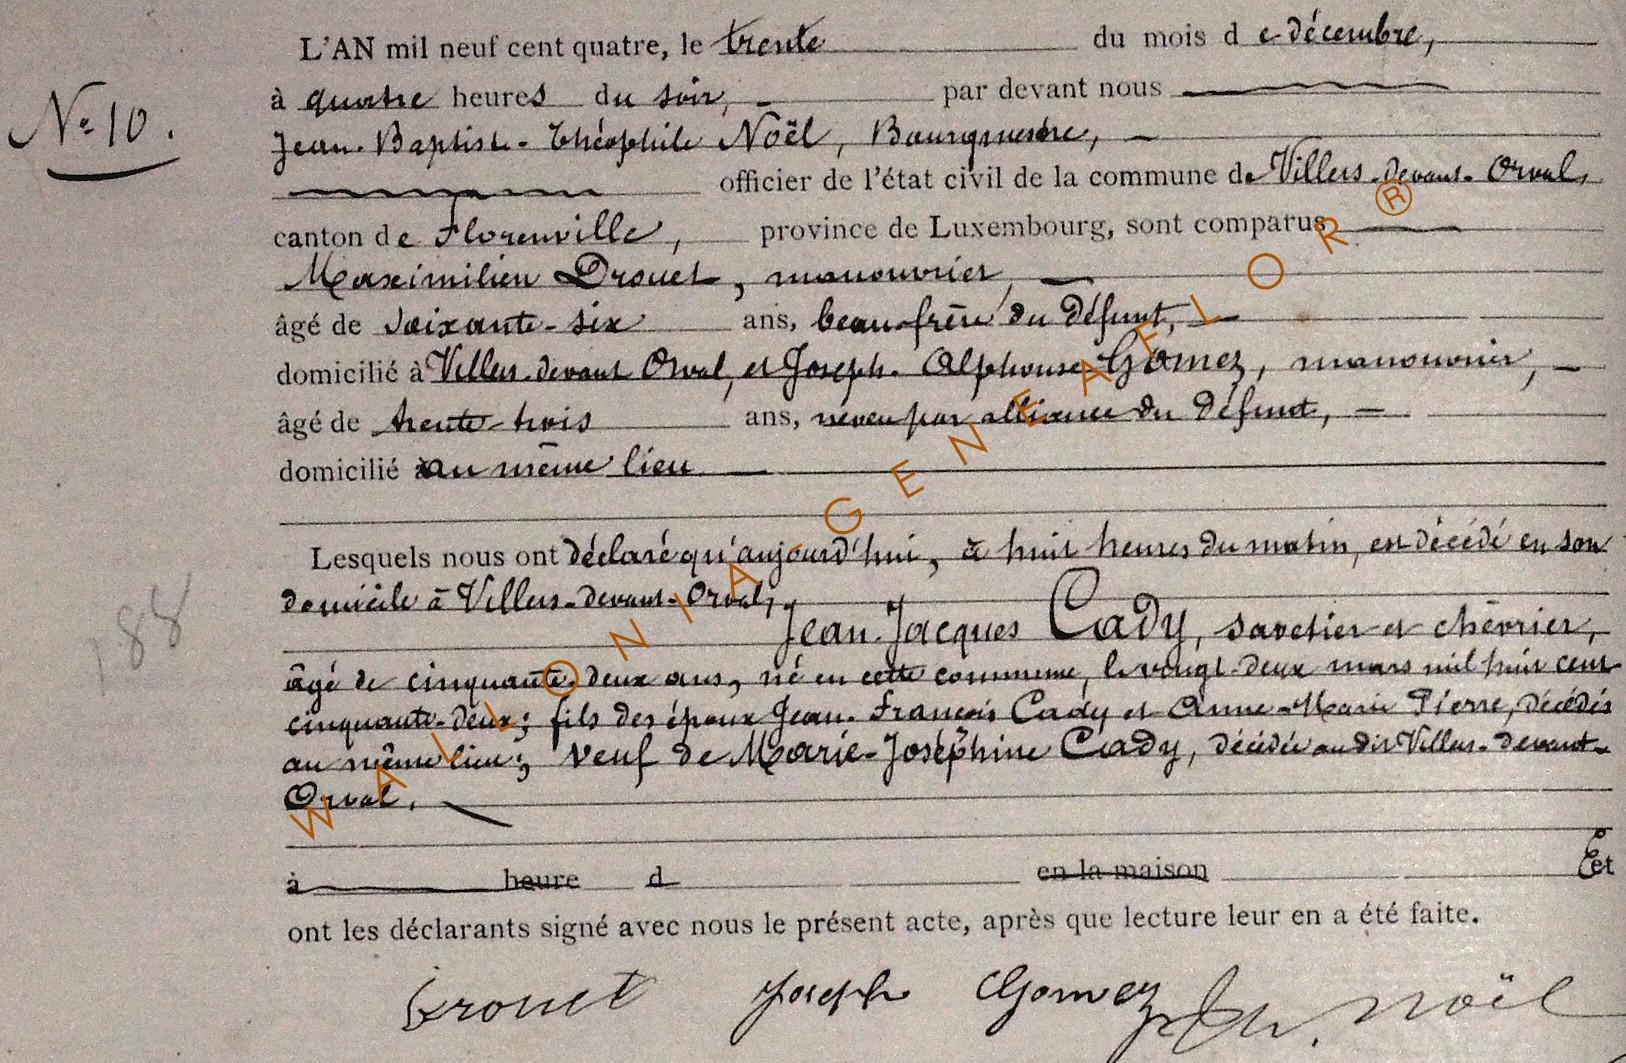 L'AN mil neuf cent quatre, le trente du mois de décembre,
à quatre heures du soir, par devant nous
N° 10.
Jean-Baptiste-Théophile Noël, Bourgmestre,
officier de l'état civil de la commune de Villers-devant-Orval,
canton de Florenville, province de Luxembourg, sont comparus
Maximilien Drouet, manouvrier,
âgé de soixante-six ans, beau-frère du défunt,
domicilié à Villers-devant-Orval, et Joseph-Alphonse Gomez, manouvrier,
âgé de trente-trois ans, neveu par alliance du défunt,
domicilié au même lieu
Lesquels nous ont déclaré qu'aujourd'hui, à huit heures du matin, est décédé en son
domicile à Villers-devant-Orval,
Jean-Jacques Cady, savetier et chévrier,
âgé de cinquante-deux ans, né en cette commune, le vingt-deux mars mil huit cent
cinquante-deux; fils des époux Jean-François Cady et Anne-Marie Pierre, décédés
au même lieu; veuf de Marie-Joséphine Cady, décédée audit Villers-devant-
Orval.
à heure d en la maison Et
ont les déclarants signé avec nous le présent acte, après que lecture leur en a été faite.
Drouet Joseph Gomez Noël
188
WALLONIA-GENEAFLOR®